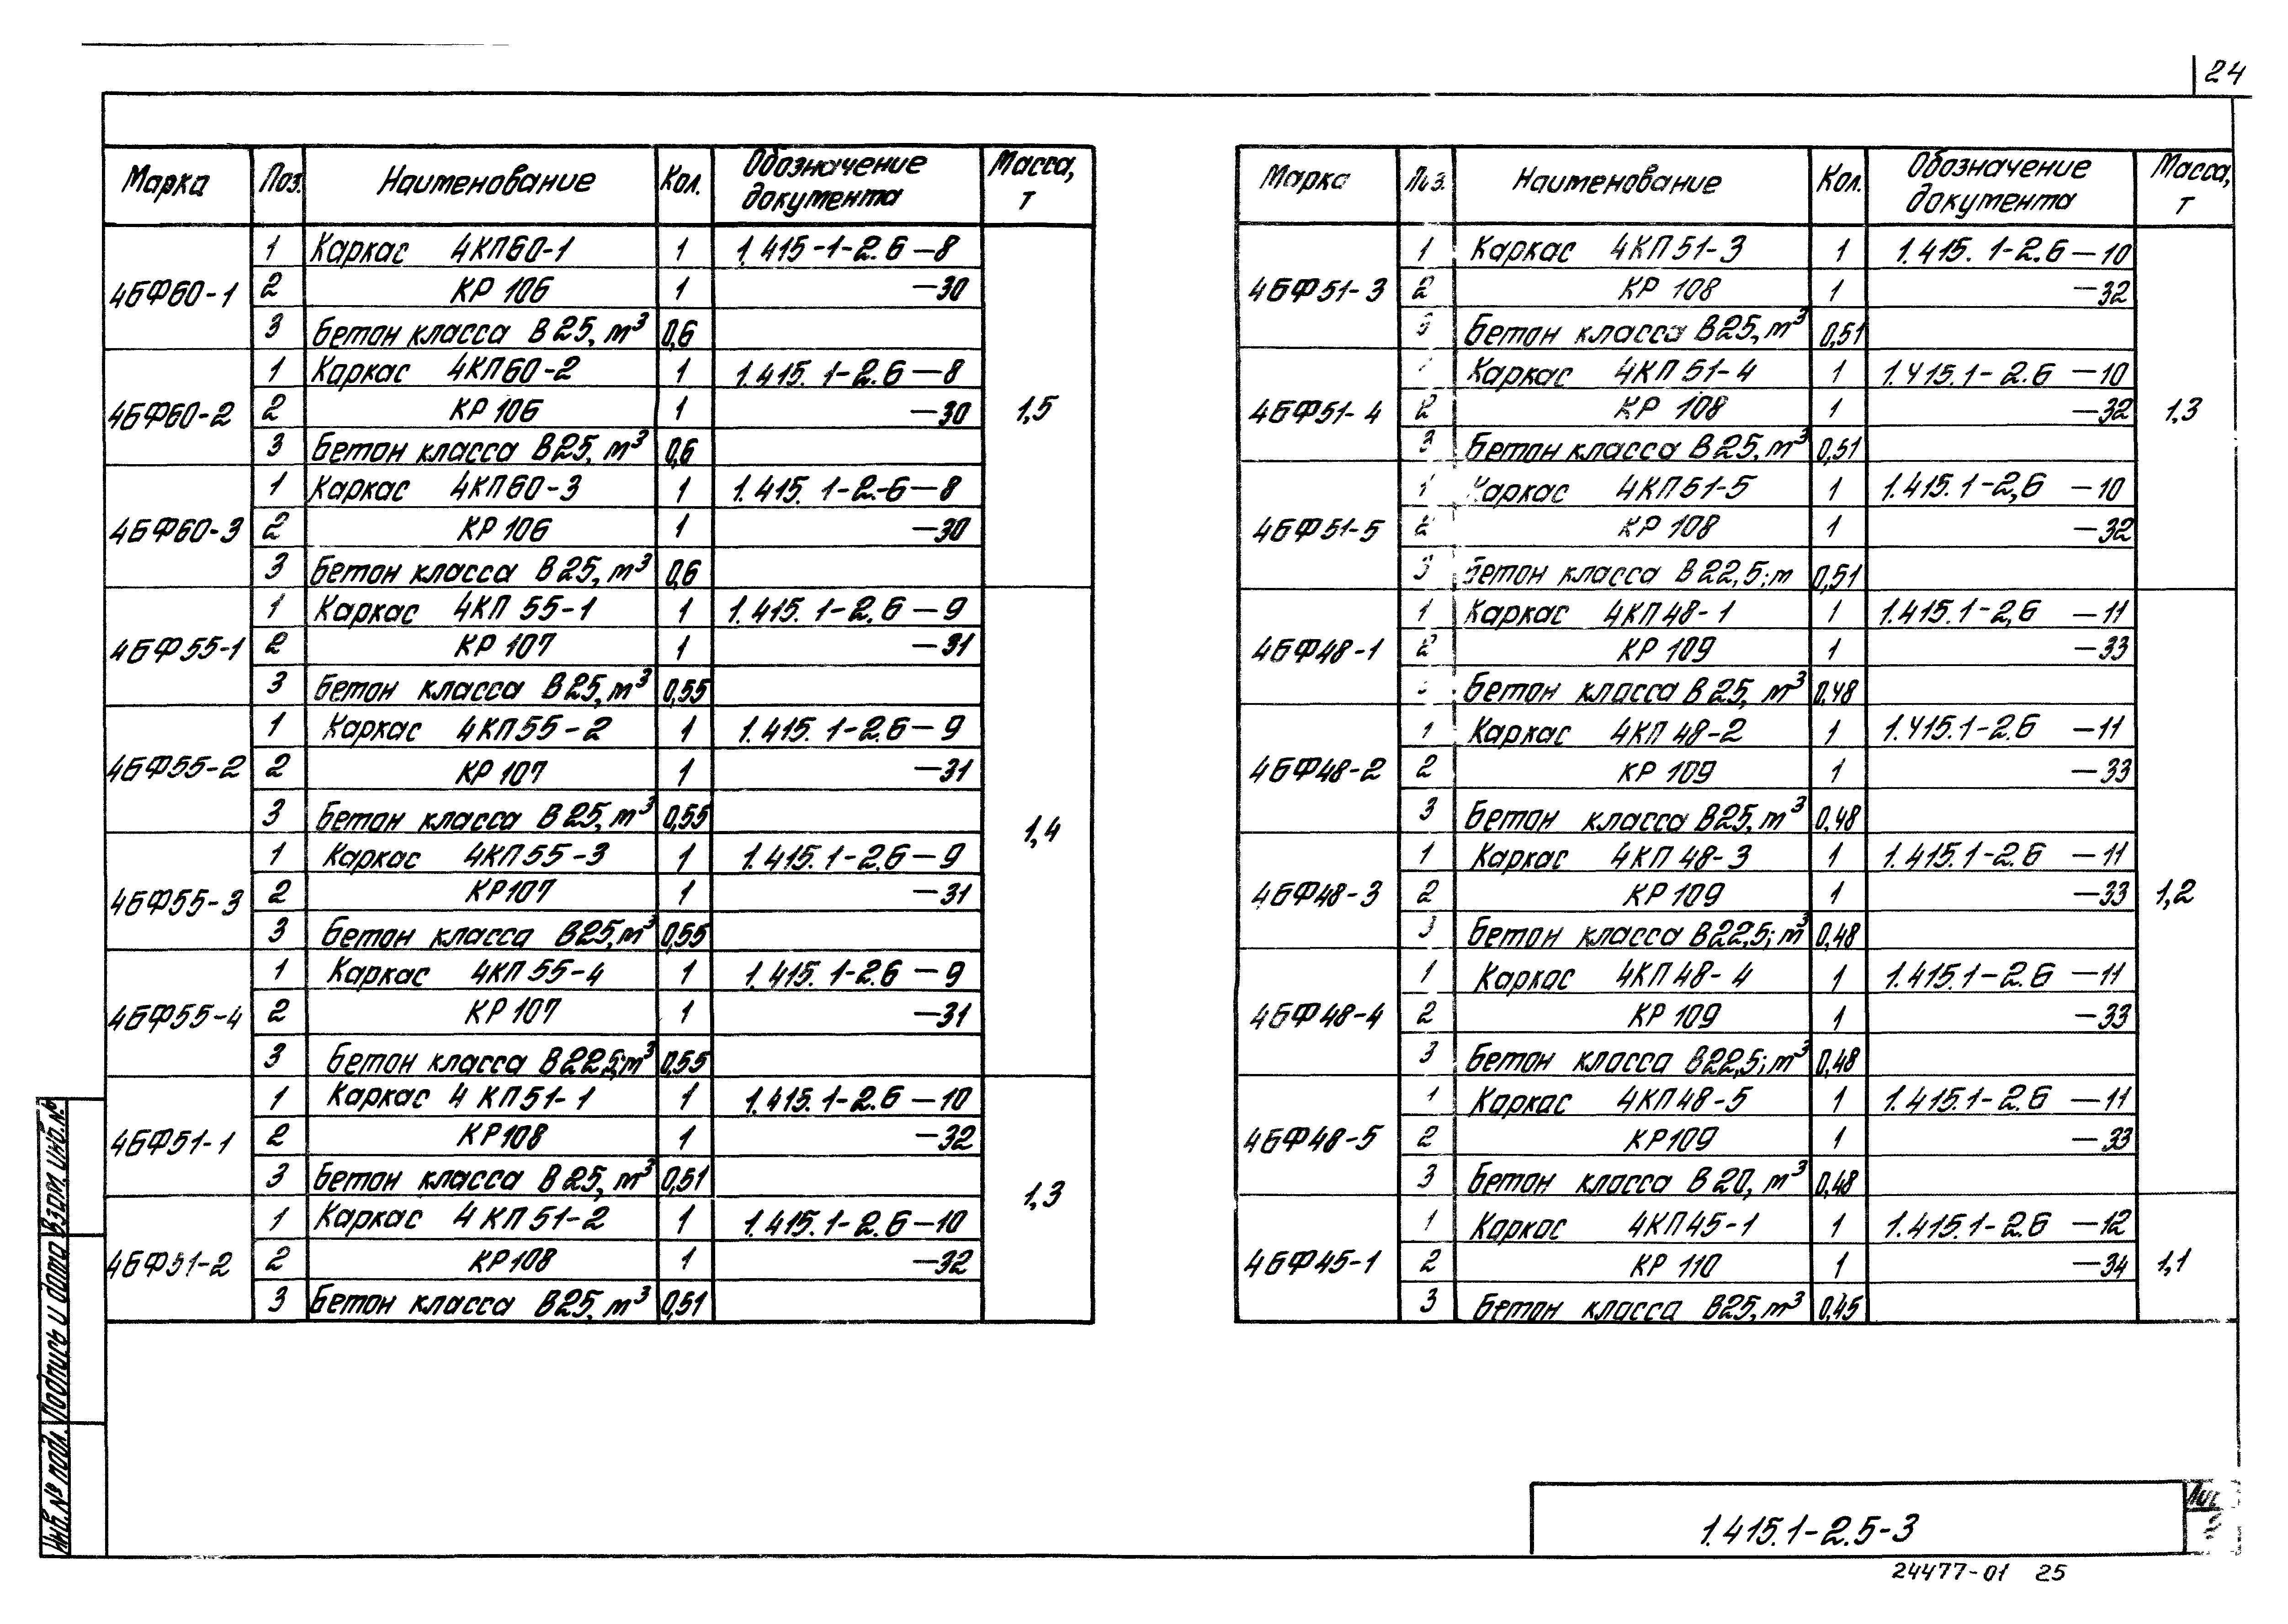 24
Марка Поз. Наименование Кол. Обозначение документа Масса, т
4БФ60-1
1 Каркас 4КП60-1 1 1.415-1-2.6-8
2 КР 106 1 -30
3 Бетон класса В25, м³ 0,6
4БФ60-2
1 Каркас 4КП60-2 1 1.415.1-2.6-8
2 КР 106 1 -30
3 Бетон класса В25, м³ 0,6
1,5
4БФ60-3
1 Каркас 4КП60-3 1 1.415.1-2.-6-8
2 КР 106 1 -30
3 Бетон класса В25, м³ 0,6
4БФ55-1
1 Каркас 4КП 55-1 1 1.415.1-2.6-9
2 КР 107 1 -31
3 Бетон класса В25, м³ 0,55
4БФ55-2
1 Каркас 4КП55-2 1 1.415.1-2.6-9
2 КР 107 1 -31
3 Бетон класса В25, м³ 0,55
1,4
4БФ55-3
1 Каркас 4КП55-3 1 1.415.1-2.6-9
2 КР107 1 -31
3 Бетон класса В25, м³ 0,55
4БФ55-4
1 Каркас 4КП55-4 1 1.415.1-2.6-9
2 КР107 1 -31
3 Бетон класса В22,5;м³ 0,55
4БФ51-1
1 Каркас 4 КП51-1 1 1.415.1-2.6-10
2 КР108 1 -32
3 Бетон класса В25, м³ 0,51
1,3
4БФ51-2
1 Каркас 4 КП51-2 1 1.415.1-2.6-10
2 КР108 1 -32
3 Бетон класса В25, м³ 0,51
Марка Поз. Наименование Кол. Обозначение документа Масса, т
4БФ51-3
1 Каркас 4КП51-3 1 1.415.1-2.6-10
2 КР 108 1 -32
3 Бетон класса В25, м³ 0,51
4БФ51-4
1 Каркас 4КП51-4 1 1.415.1-2.6 -10
2 КР 108 1 -32
3 Бетон класса В25, м³ 0,51
1,3
4БФ51-5
1 Каркас 4КП51-5 1 1.415.1-2,6 -10
2 КР 108 1 -32
3 Бетон класса В22,5;м 0,51
4БФ48-1
1 Каркас 4КП48-1 1 1.415.1-2,6 -11
2 КР 109 1 -33
3 Бетон класса В25, м³ 0,48
4БФ48-2
1 Каркас 4КП 48-2 1 1.415.1-2.6 -11
2 КР 109 1 -33
3 Бетон класса В25, м³ 0,48
4БФ48-3
1 Каркас 4КП 48-3 1 1.415.1-2.6 -11
2 КР 109 1 -33
3 Бетон класса В22,5; м³ 0,48
1,2
4БФ48-4
1 Каркас 4КП48-4 1 1.415.1-2.6 -11
2 КР 109 1 -33
3 Бетон класса В22,5; м³ 0,48
4БФ48-5
1 Каркас 4КП48-5 1 1.415.1-2.6 -11
2 КР109 1 -33
3 Бетон класса В20, м³ 0,48
4БФ45-1
1 Каркас 4КП45-1 1 1.415.1-2.6 -12
2 КР 110 1 -34
3 Бетон класса В25, м³ 0,45
1,1
Инв.№ подл. Подпись и дата Взам. инв.№
1.415.1-2.5-3
24477-01 25